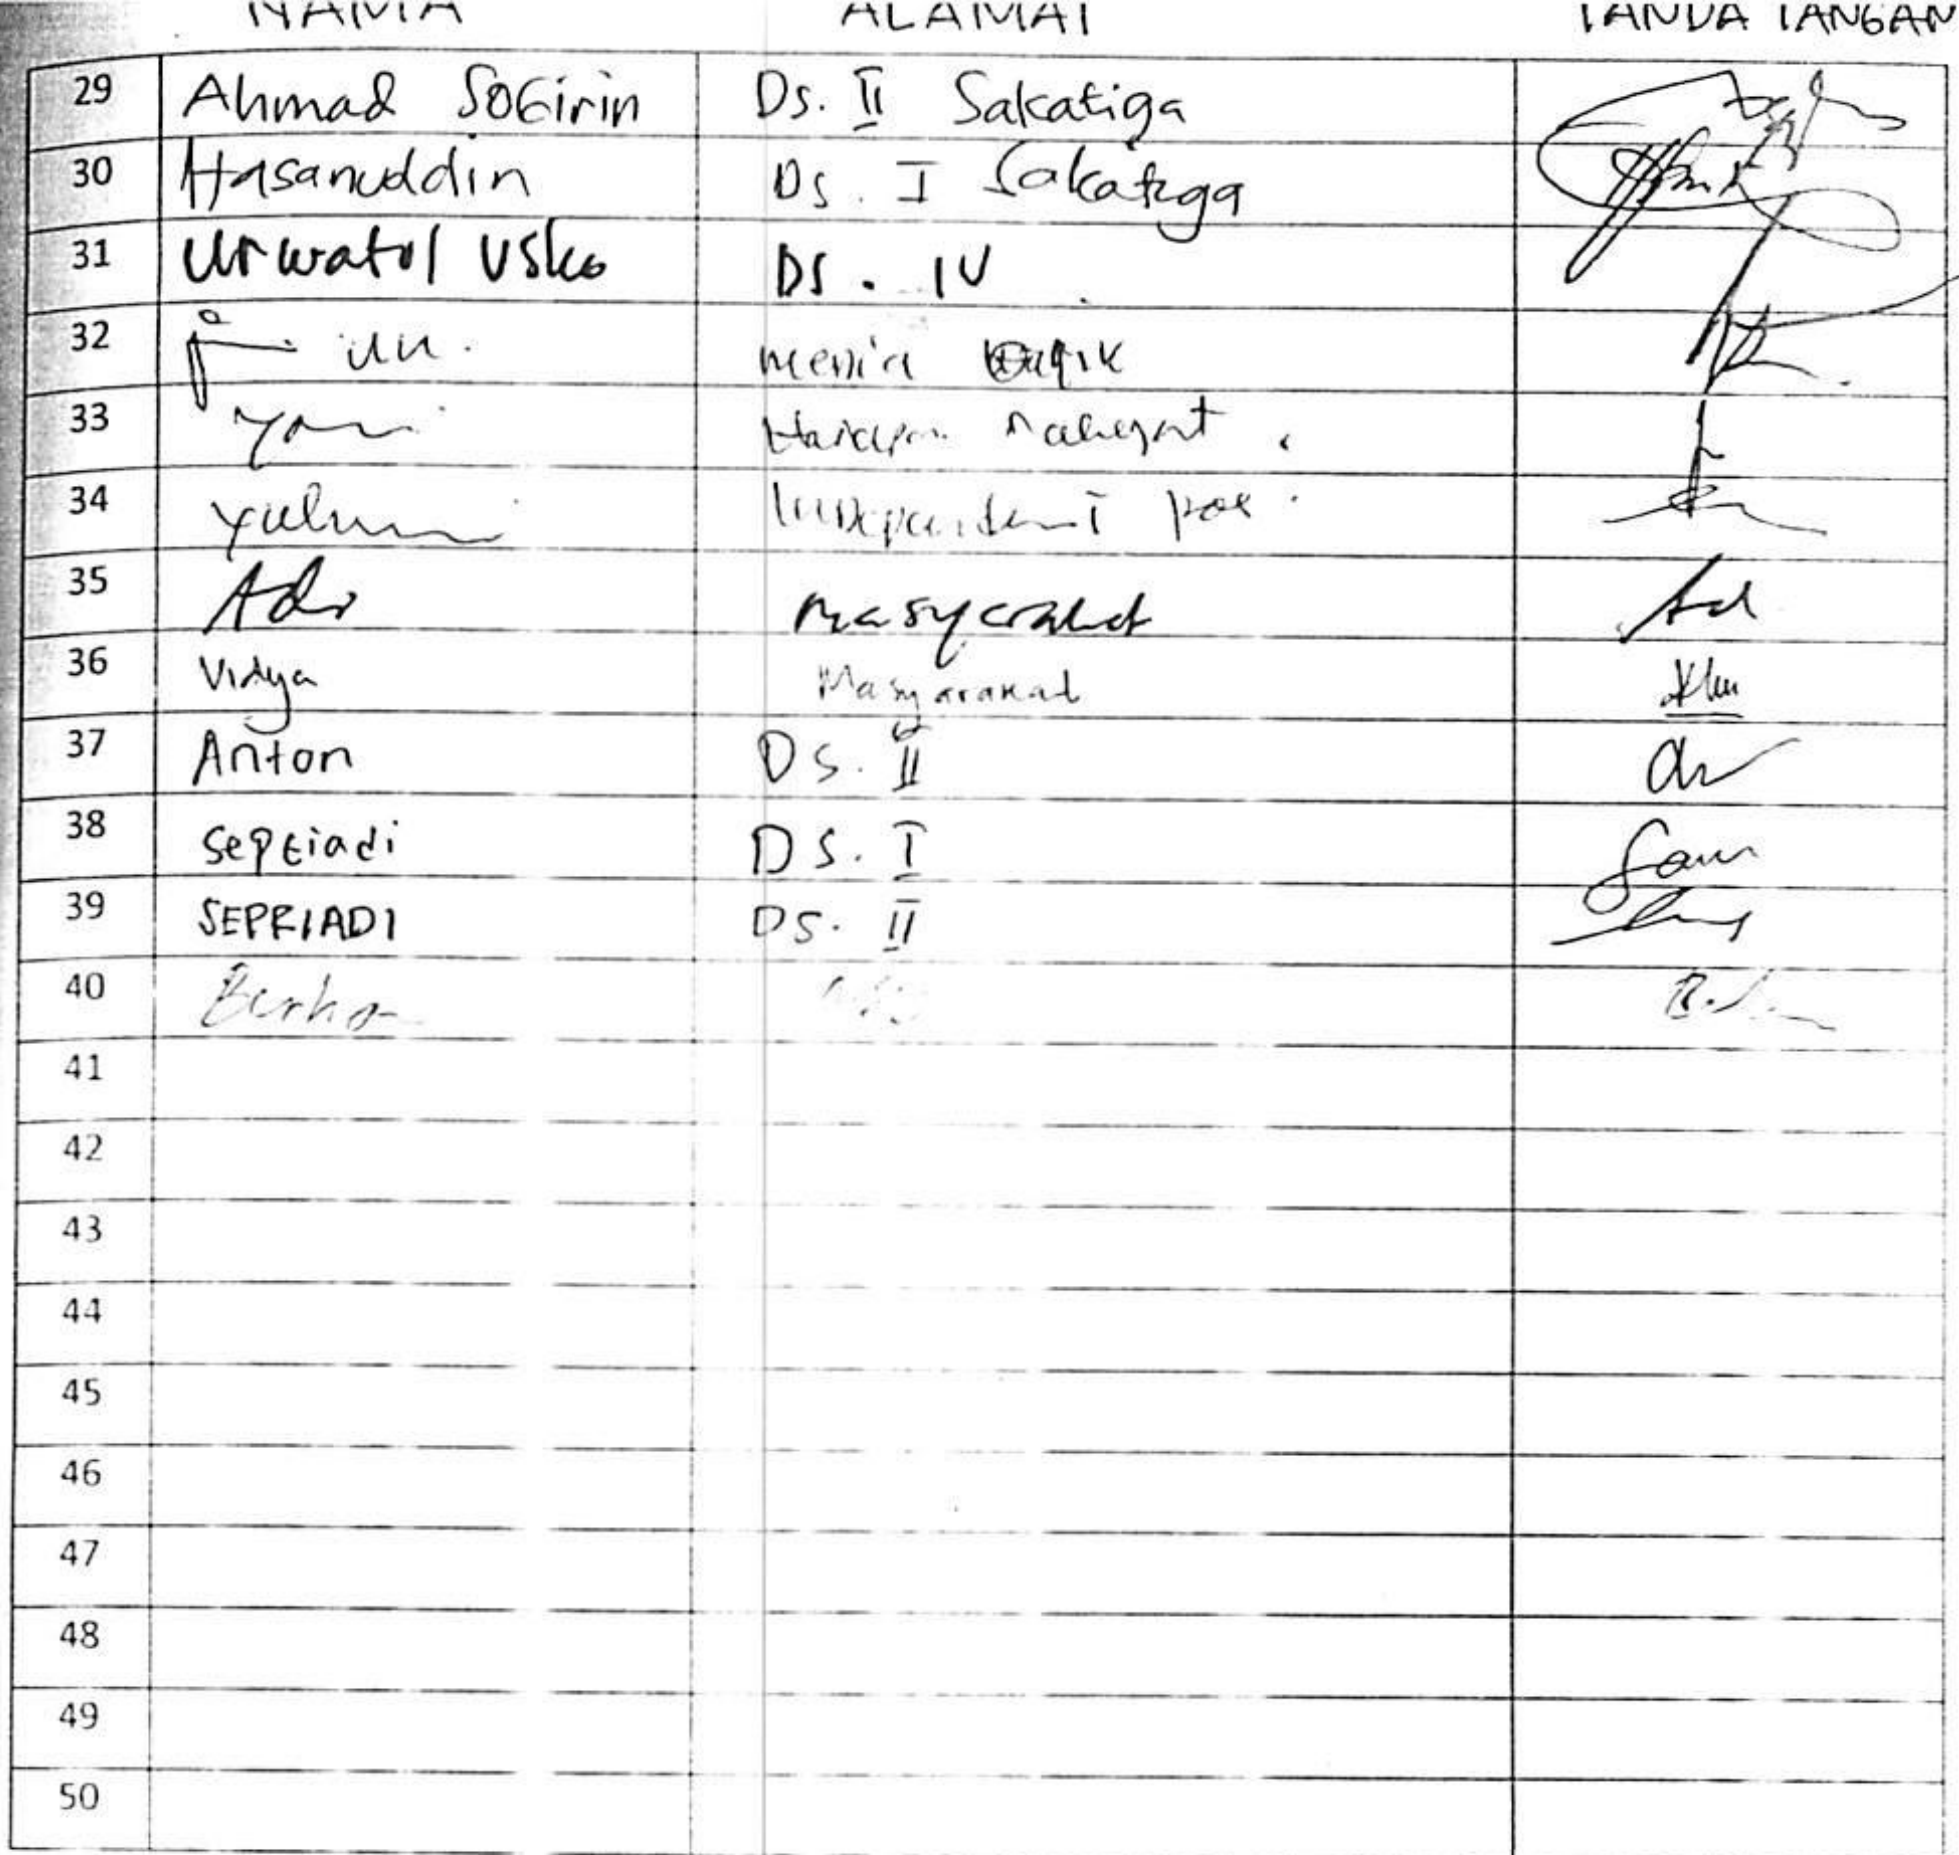 NAMA ALAMAT TANDA TANGAN
29 Ahmad SOGirin Ds. II Sakatiga
30 Hasanuddin Ds. I Sakatiga
31 Urwatul Usko DS. IV
32
33 Yani Harapan Rakyat
34 Independent pos
35 Adi Masyarakat
36 Vidya Masyarakat
37 Anton DS. II
38 Septiadi DS. I
39 SEPRIADI DS. II
40
41
42
43
44
45
46
47
48
49
50